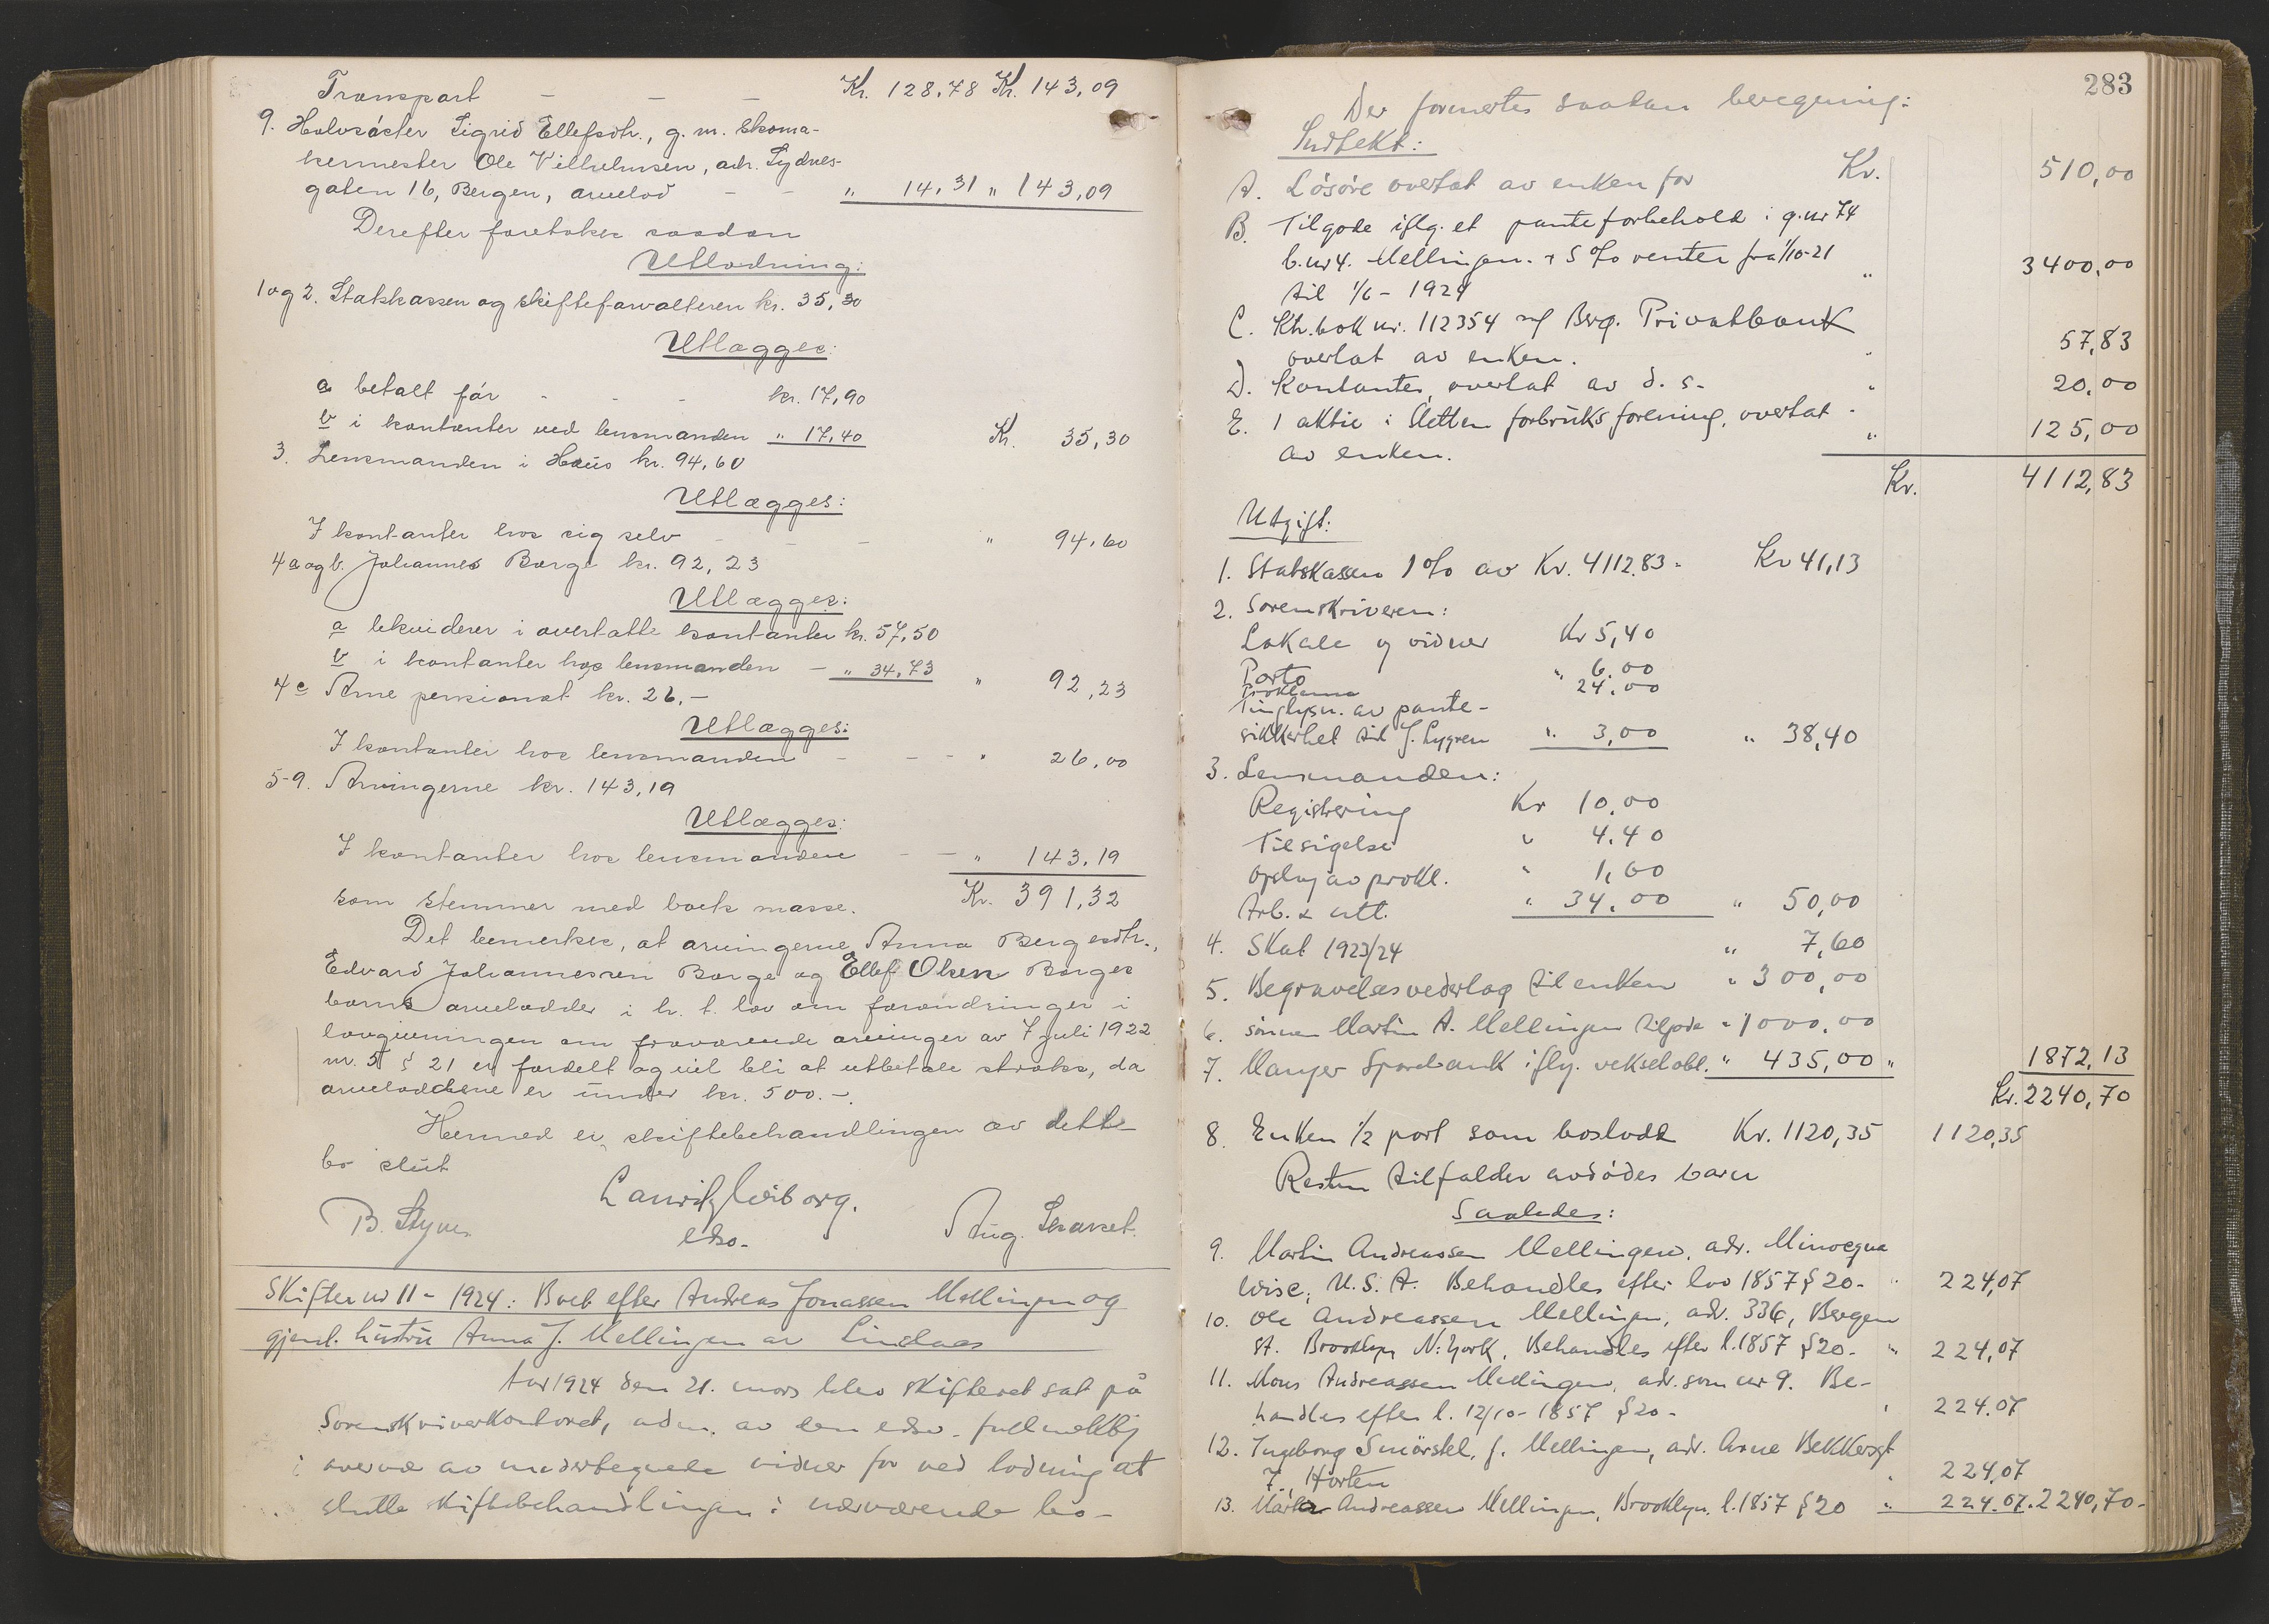 Transport - - - Kr. 128,78 Kr. 143,09
9. Halvsöster Sigrid Ellefsdtr., g. m. skoma-
kermester Ole Vilhelmsen, adr. Sydnes-
gaten 16, Bergen, arvelod - - " 14,31 " 143,09
Derefter foretokes saadan
Utlodning:
1 og 2. Statskassen og skifteforvalteren kr. 35,30
Utlægges:
a betalt för - - - kr. 17,90
b i kontanter ved lensmanden " 17,40 Kr. 35,30
3. Lensmanden i Haus kr. 94,60
Utlægges:
I kontanter hos sig selv - - - " 94,60
4 a og b. Johannes Borge kr. 92,23
Utlægges:
a likviderer i overtatte kontanter kr. 57,50
b i kontanter hos lensmanden - " 34,73 " 92,23
4 c Arne pensionat kr. 26,-
Utlægges:
I kontanter hos lensmanden - - - " 26,00
5-9. Arvingerne kr. 143,19
Utlægges:
I kontanter hos lensmanden - - " 143,19
som stemmer med boets masse. Kr. 391,32
Det bemerkes, at arvingerne Anna Bergesdtr.,
Edvard Johannessen Borge og Ellef Olsen Borges
barns arvelodder i h. t. lov om forandringer i
lovgivningen om fraværende arvinger av 7 juli 1922
nr. 5 § 21 er fordelt og vil bli at utbetale straks, da
arveloddene er under kr. 500.-.
Hermed er skiftebehandlingen av dette
bo slut
B. Styve Lauritz Wiborg. Aug. Skarset.
edsv.
Skifte nr 11 - 1924: Boet efter Andreas Jonassen Mellingen og
gjenl. hustru Anna J. Mellingen av Lindaas
Aar 1924 den 21. mars blev skifteret sat på
Sorenskriverkontoret, adm. av den edsv. fuldmektig
i overvær av undertegnede vidner for ved lodning at
slutte skiftebehandlingen i nærværende bo -
283
Der formertes saadan beregning:
Indtekt:
A. Lösöre overtat av enken for Kr. 510,00
B. Tilgode iflg. et panteforbehold i g.nr 74
b.nr 4. Mellingen. + 5 % renter fra 1/10-21
til 1/6 - 1924 " 3400,00
C. Ktr.bok nr. 112354 Berg. Privatbank
overtat av enken. " 57,83
D. Kontanter, overtat av d. s. " 20,00
E. 1 aktie i Sletten forbruksforening, overtat
av enken. " 125,00
Kr. 4112,83
Utgift:
1. Statskassen 1 % av Kr. 4112.83 - Kr 41,13
2. Sorenskriveren:
Lokale og vidner Kr 5,40
Porto " 6.00
Proklama 24.00
Tinglysn. av pante-
sikkerhet til J. Lygren " 3,00 " 38,40
3. Lensmanden:
Registrering Kr 10.00
Tilsigelse " 4.40
Opslag av prokl. " 1,60
Arb. & utl. " 34.00 " 50,00
4. Skat 1923/24 " 7,60
5. Begravelsesvederlag til enken " 300,00
6. sönnen Martin A. Mellingen tilgode " 1000.00
7. Manger Sparebank iflg. vekselobl. " 435,00 " 1872,13
Kr. 2240,70
8. Enken 1/2 part som boslodd Kr. 1120,35 1120,35
Resten tilfalder avdödes barn
Saaledes:
9. Martin Andreassen Mellingen, adr. Minocqua
Wisc, U.S.A. Behandles efter lov 1857 § 20 - " 224,07
10. Ole Andreassen Mellingen, adr. 336, Bergen
st. Brooklyn N. York. Behandles efter l. 1857 § 20 - " 224,07
11. Mons Andreassen Mellingen, adr. som nr 9. Be-
handles efter l. 12/10-1857 § 20 - " 224.07
12. Ingeborg Smörstel, f. Mellingen, adr. Arne Bekkersgt
7. Horten " 224,07
13. Andreassen Mellingen, Brooklyn, l. 1857 § 20 " 224.07. 2240,70 -